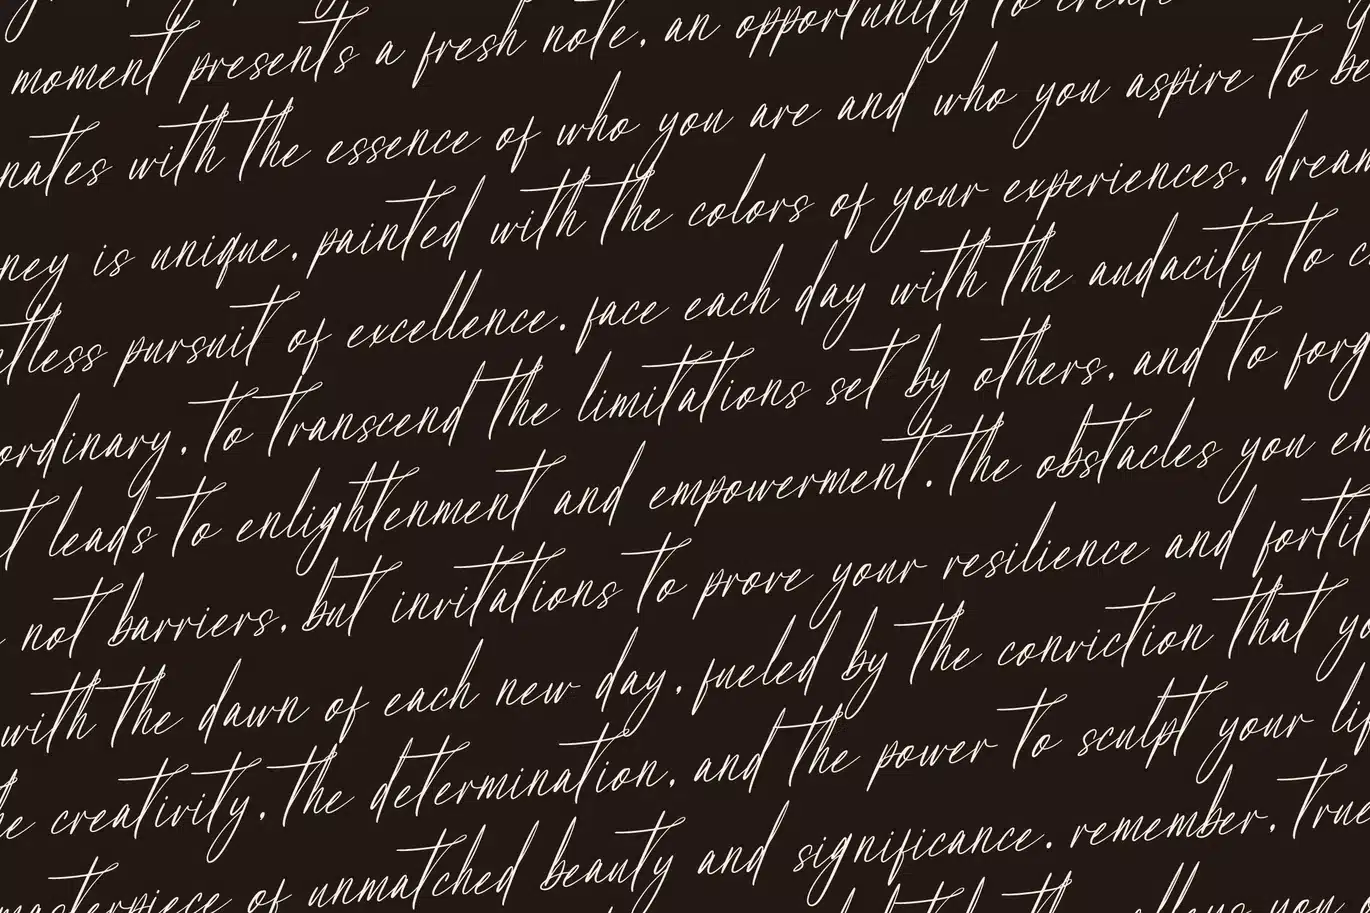 moment presents a fresh note, an opportunity to create
nates with the essence of who you are and who you aspire to be
ney is unique, painted with the colors of your experiences, dream
tless pursuit of excellence. face each day with the audacity to c
ordinary, to transcend the limitations set by others, and to forg
t leads to enlightenment and empowerment. the obstacles you en
not barriers, but invitations to prove your resilience and fortit
with the dawn of each new day, fueled by the conviction that yo
he creativity, the determination, and the power to sculpt your lif
masterpiece of unmatched beauty and significance. remember, true